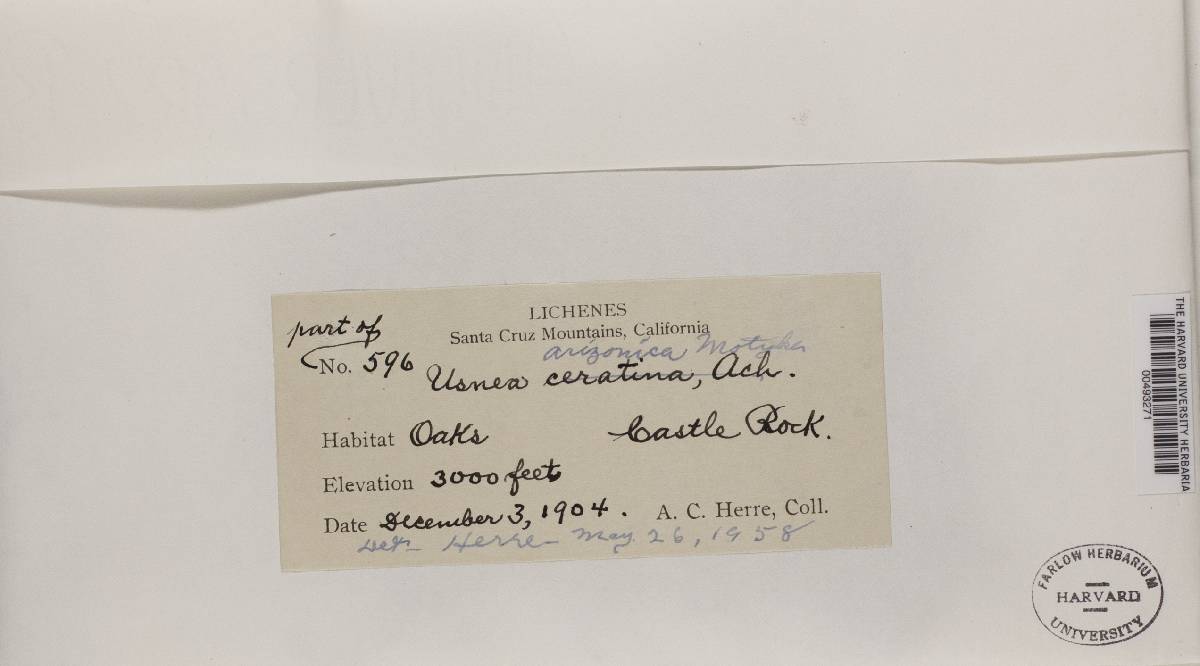 LICHENES
Santa Cruz Mountains, California
part of
No. 596
arizonica Motyka
Usnea ceratina, Ach.
Habitat Oaks Castle Rock.
Elevation 3000 feet
Date December 3, 1904. A. C. Herre, Coll.
Det. Herre - May 26, 1958
THE HARVARD UNIVERSITY HERBARIA
00493271
FARLOW HERBARIUM
HARVARD
UNIVERSITY